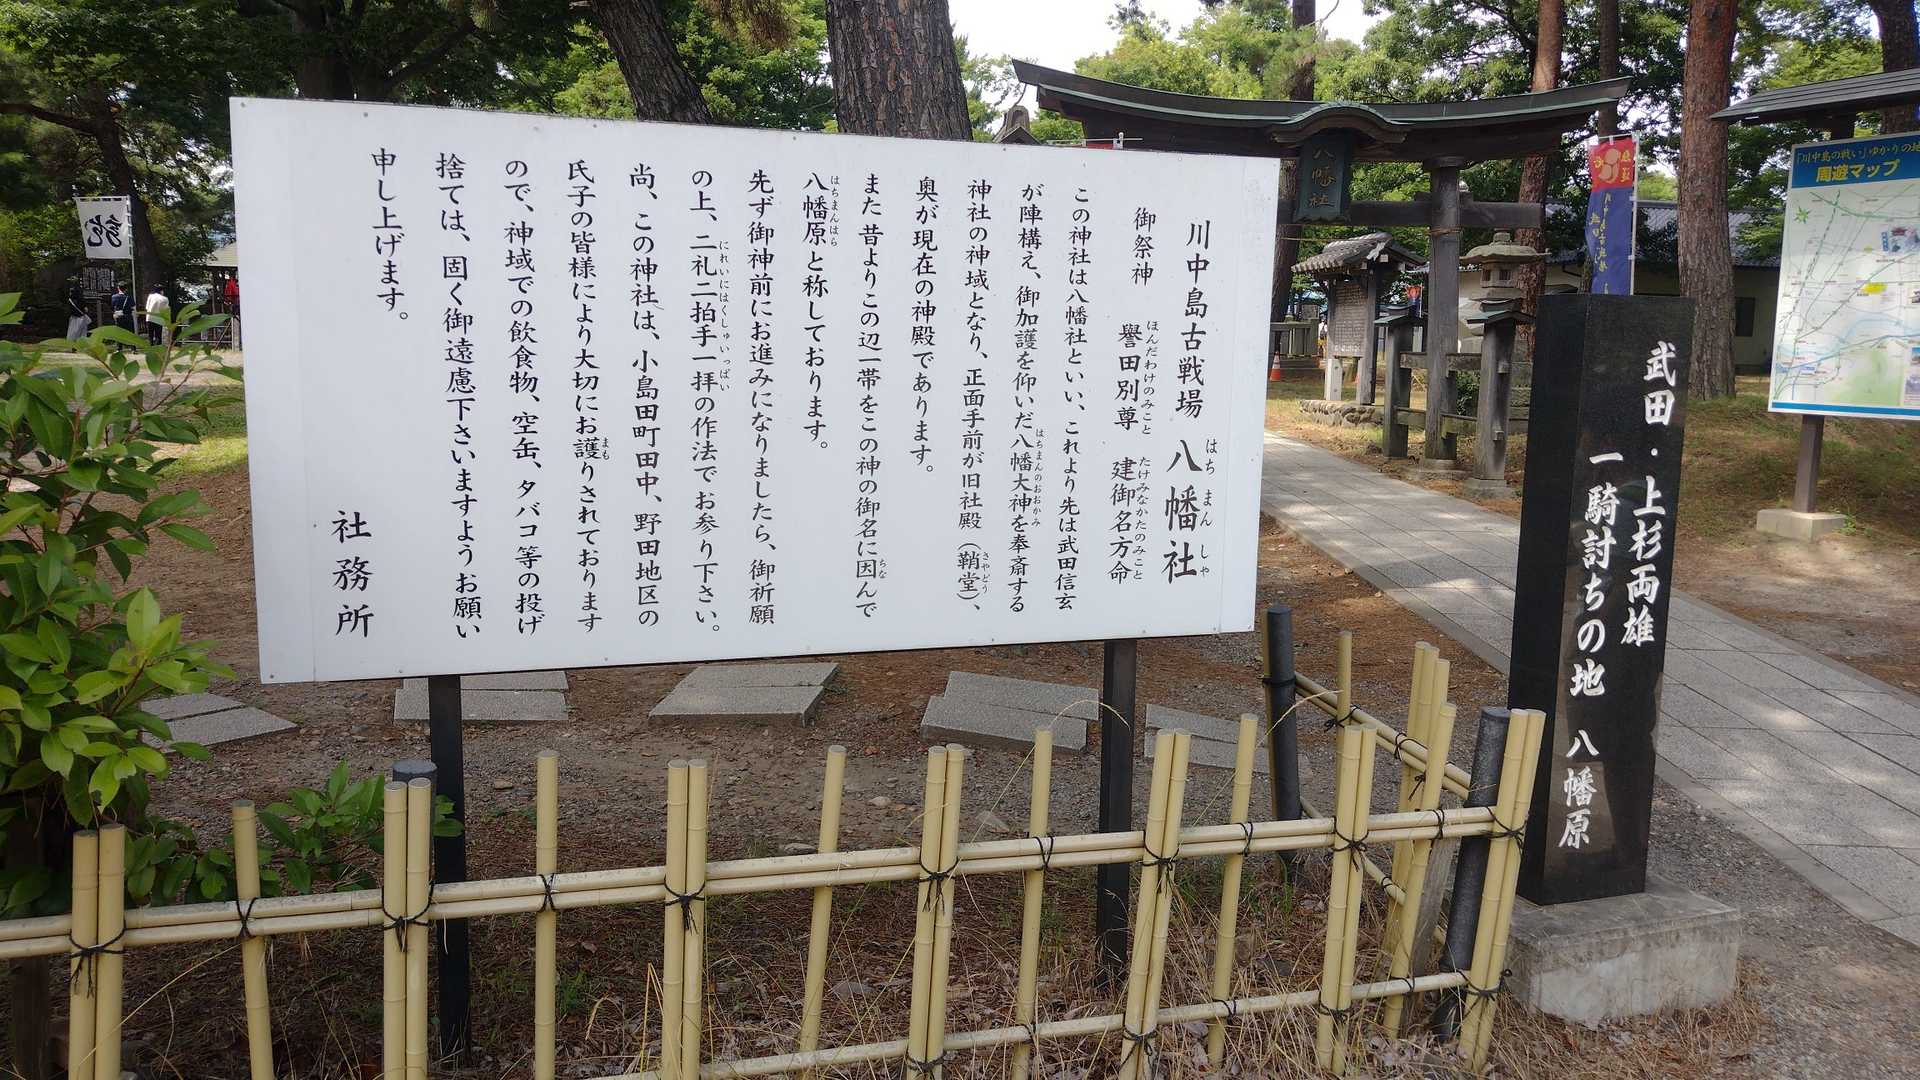 川中島古戦場 八幡社
はちまんしゃ
御祭神 譽田別尊 建御名方命
ほんだわけのみこと たけみなかたのみこと
この神社は八幡社といい、これより先は武田信玄
が陣構え、御加護を仰いだ八幡大神を奉斎する
はちまんのおおかみ
神社の神域となり、正面手前が旧社殿（鞘堂）、
さやどう
奥が現在の神殿であります。
また昔よりこの辺一帯をこの神の御名に因んで
ちな
八幡原と称しております。
はちまんはら
先ず御神前にお進みになりましたら、御祈願
の上、二礼二拍手一拝の作法でお参り下さい。
にれいにはくしゅいっぱい
尚、この神社は、小島田町田中、野田地区の
氏子の皆様により大切にお護りされております
まも
ので、神域での飲食物、空缶、タバコ等の投げ
捨ては、固く御遠慮下さいますようお願い
申し上げます。
社務所
八幡社
武田・上杉両雄
一騎討ちの地 八幡原
「川中島の戦い」ゆかりの地
周遊マップ